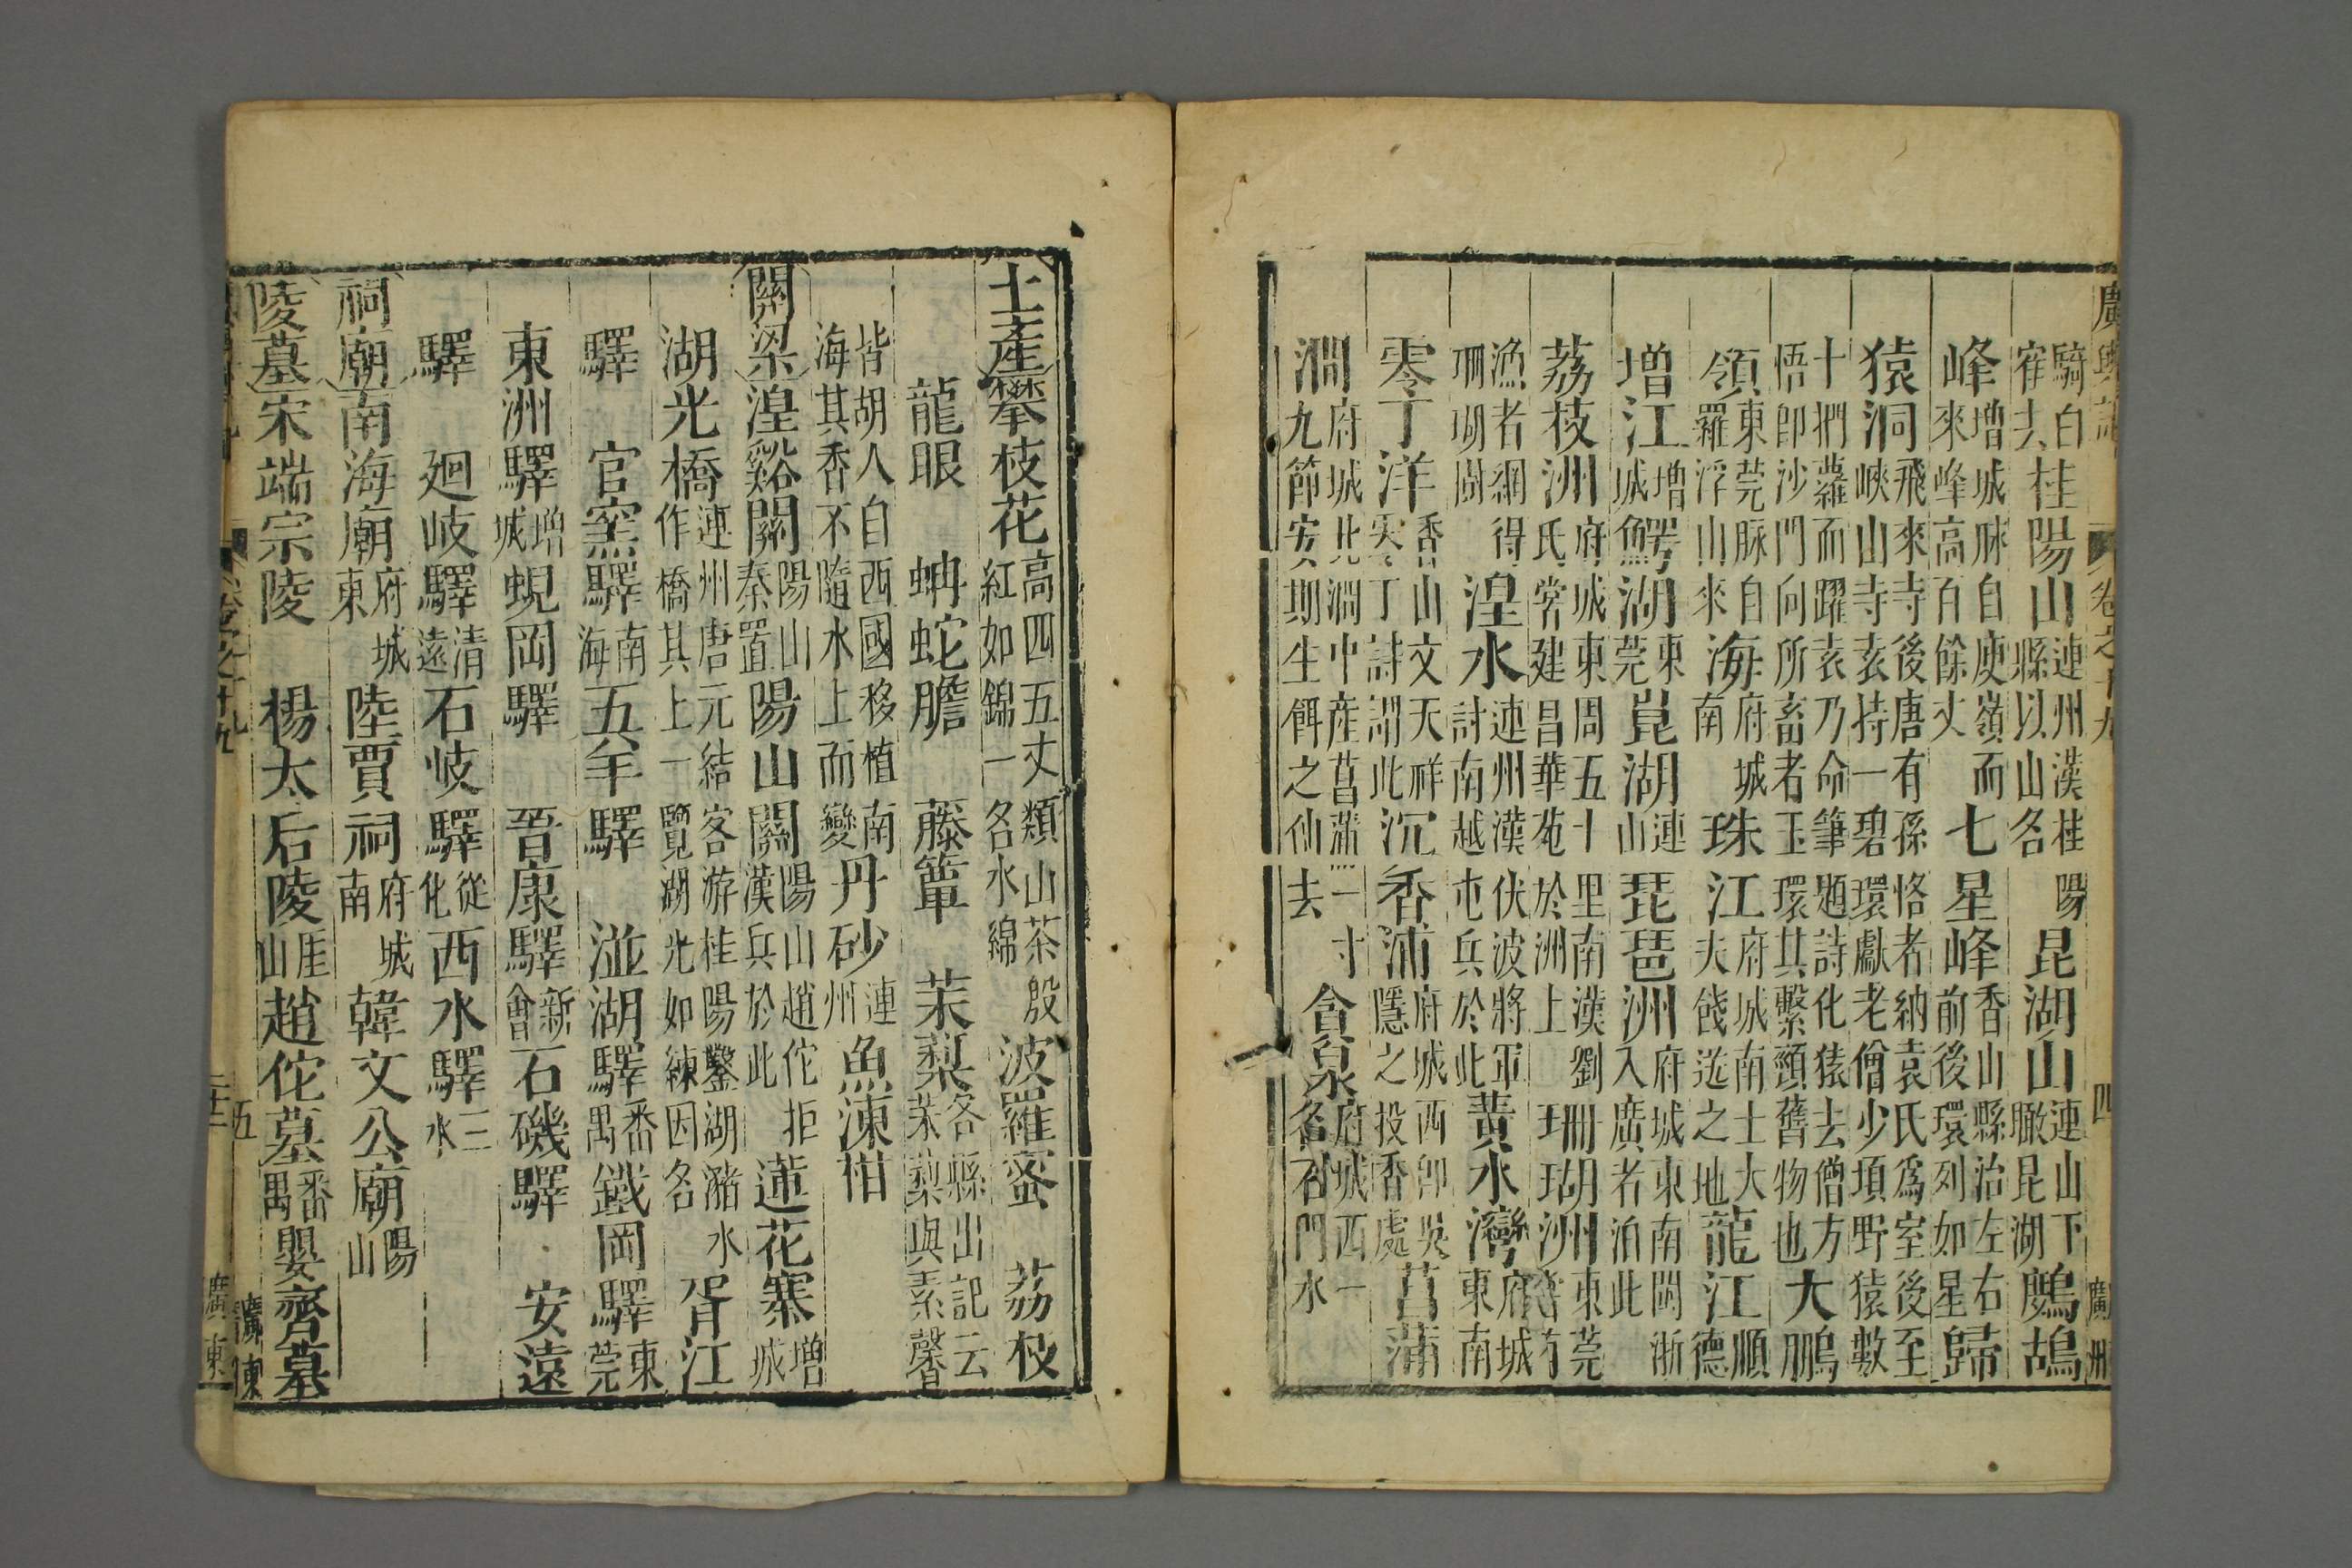 廣輿記 卷之十九 四 廣州
騎白桂陽
宿去桂陽山連州漢桂陽縣以山名昆湖山連山下瞰昆湖鷓鴣
峰增城脉自庾嶺而來峰高百餘丈七星峰香山縣治左右前後環列如星歸
猿洞飛來寺後唐有孫恪者納袁氏爲室後至峽山寺袁持一碧環獻老僧少頃野猿數
十捫蘿而躍袁乃命筆題詩化猿去僧方悟卽沙門向所畜者玉環其繫頸舊物也大鵬
領東莞脉自羅浮山來海府城南珠江府城南士大夫餞送之地龍江順德
增江增城鰐湖東莞崑湖連山琵琶洲府城東南閩浙入廣者泊此
荔枝洲府城東周五十里南漢劉氏常建昌華苑於洲上珊瑚洲東莞有
漁者網得珊瑚樹湟水連州漢伏波將軍討南越屯兵於此黃水灣府城東南
零丁洋香山文天祥零丁詩謂此沉香浦府城西卽吳隱之投香處菖蒲
澗府城北澗中產菖蒲一寸九節安期生餌之仙去貪泉府城西一名石門水
土產攀枝花高四五丈類山茶殷紅如錦一名水綿波羅蜜 荔枝
龍眼 蚺蛇膽 藤簟 茉梨各縣出記云茉莉與素馨
皆胡人自西國移植南海其香不隨水上而變丹砂連州魚凍柑
關梁湟谿關陽山秦置陽山關陽山趙佗拒漢兵於此蓮花寨增城
湖光橋連州唐元結作橋其上一覽湖光如練因名客游桂陽鑿湖瀦水胥江
驛 官窯驛南海五羊驛 湴湖驛番禺鐵岡驛東莞
東洲驛增城蜆岡驛 晉康驛新會石磯驛 安遠
驛 廻岐驛清遠石岐驛從化西水驛三水
祠廟南海廟府城東陸賈祠府城南韓文公廟陽山
陵墓宋端宗陵 楊太后陵厓山趙佗墓番禺嬰齊墓
卷之十九 五 廣東